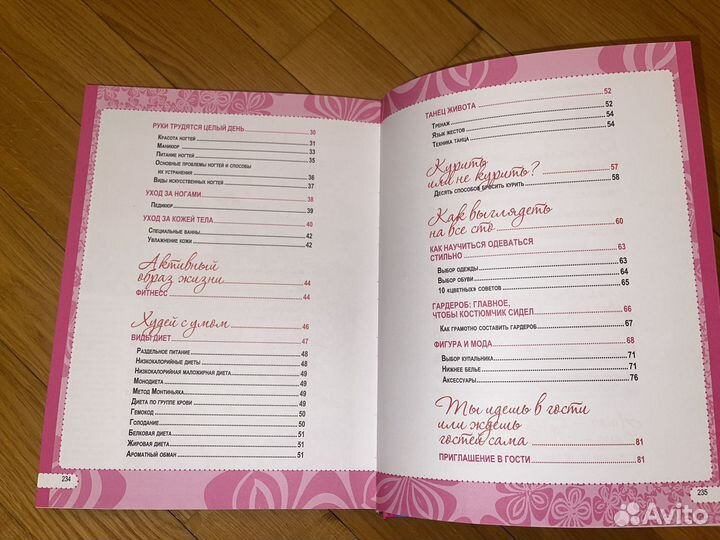 РУКИ ТРУДЯТСЯ ЦЕЛЫЙ ДЕНЬ 30
КРАСОТА НОГТЕЙ 31
МАНИКЮР 33
ПИТАНИЕ НОГТЕЙ 35
ОСНОВНЫЕ ПРОБЛЕМЫ НОГТЕЙ И СПОСОБЫ
ИХ УСТРАНЕНИЯ 36
ВИДЫ ИСКУССТВЕННЫХ НОГТЕЙ 37
УХОД ЗА НОГАМИ 38
ПЕДИКЮР 39
УХОД ЗА КОЖЕЙ ТЕЛА 40
СПЕЦИАЛЬНЫЕ ВАННЫ 42
УВЛАЖНЕНИЕ КОЖИ 42
Активный
образ жизни 44
ФИТНЕСС 44
Худей с умом 46
ВИДЫ ДИЕТ 47
РАЗДЕЛЬНОЕ ПИТАНИЕ 48
НИЗКОКАЛОРИЙНЫЕ ДИЕТЫ 48
НИЗКОКАЛОРИЙНАЯ МАЛОЖИРНАЯ ДИЕТА 49
МОНОДИЕТА 49
МЕТОД МОНТИНЬЯКА 49
ДИЕТА ПО ГРУППЕ КРОВИ 49
ГЕМОКОД 50
ГОЛОДАНИЕ 50
БЕЛКОВАЯ ДИЕТА 51
ЖИРОВАЯ ДИЕТА 51
АРОМАТНЫЙ ОБМАН 51
234
ТАНЕЦ ЖИВОТА 52
ТРЕНАЖ 52
ЯЗЫК ЖЕСТОВ 54
ТЕХНИКА ТАНЦА 54
Курить
или не курить? 57
ДЕСЯТЬ СПОСОБОВ БРОСИТЬ КУРИТЬ 58
Как выглядеть
на все сто 60
КАК НАУЧИТЬСЯ ОДЕВАТЬСЯ
СТИЛЬНО 63
ВЫБОР ОДЕЖДЫ 63
ВЫБОР ОБУВИ 64
10 «ЦВЕТНЫХ» СОВЕТОВ 65
ГАРДЕРОБ: ГЛАВНОЕ,
ЧТОБЫ КОСТЮМЧИК СИДЕЛ 66
КАК ГРАМОТНО СОСТАВИТЬ ГАРДЕРОБ 67
ФИГУРА И МОДА 68
ВЫБОР КУПАЛЬНИКА 71
НИЖНЕЕ БЕЛЬЕ 71
АКСЕССУАРЫ 76
Ты идешь в гости
или ждешь
гостей сама 81
ПРИГЛАШЕНИЕ В ГОСТИ 81
235
Avito